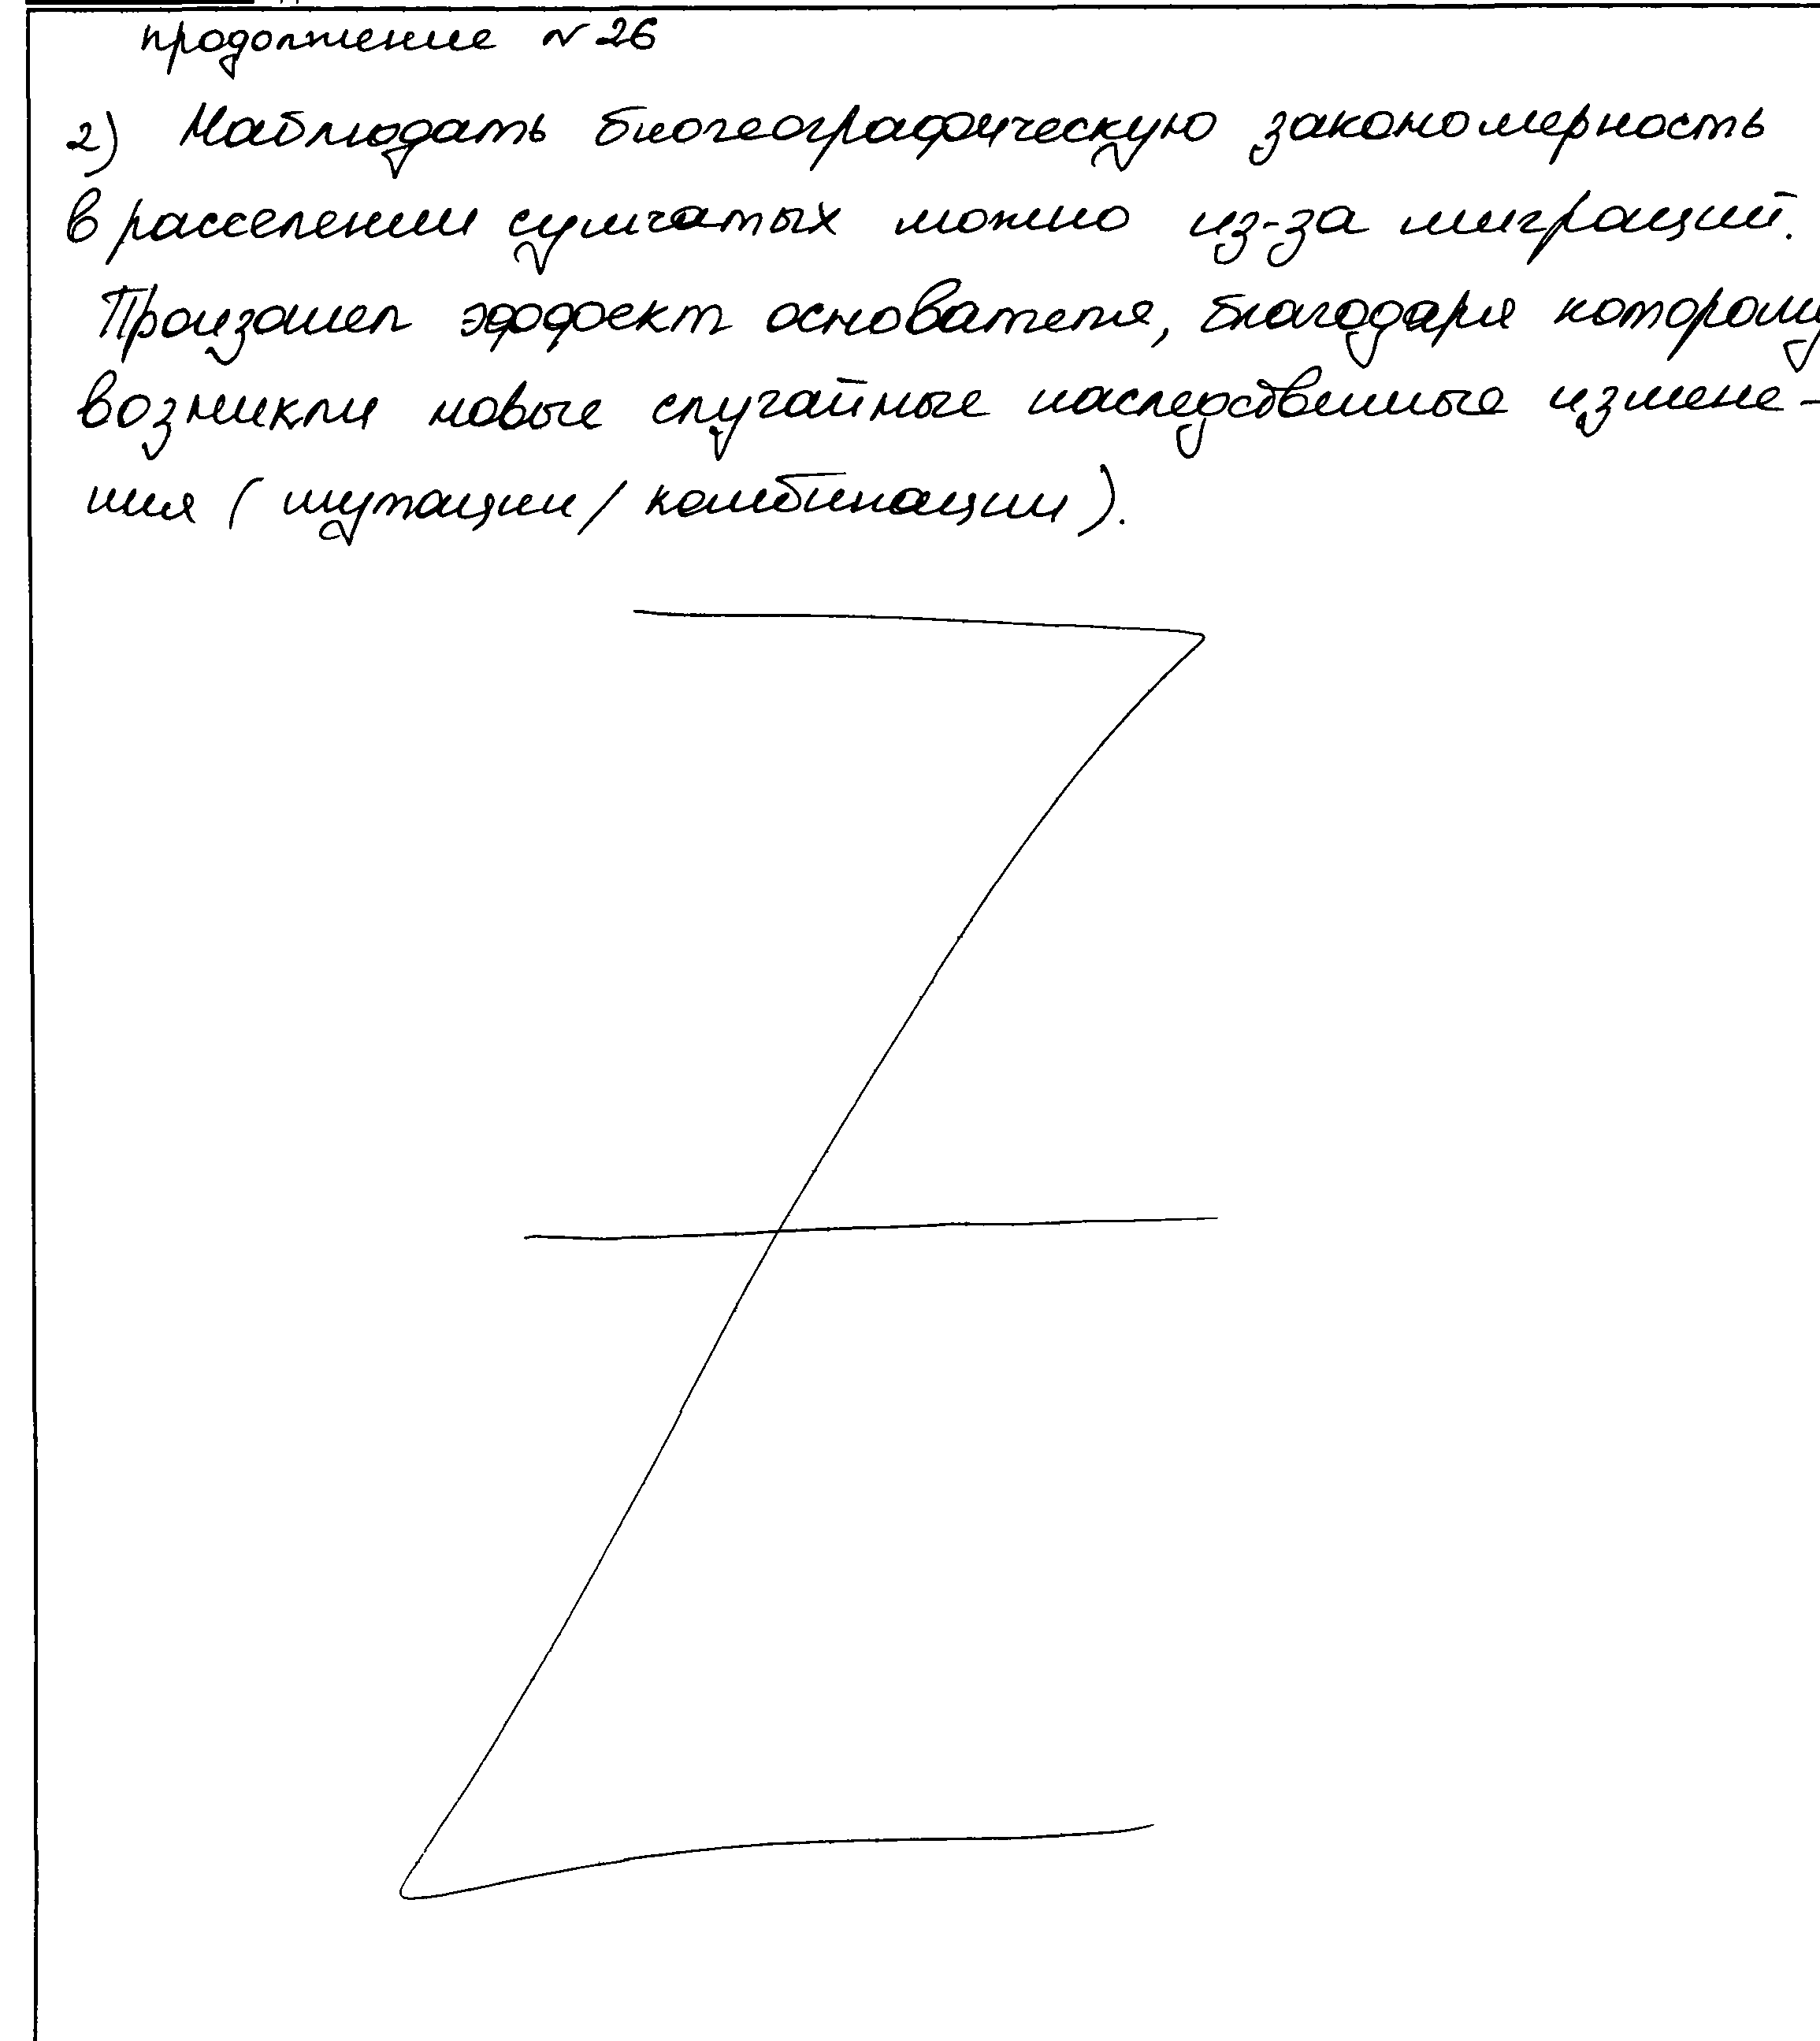 продолжение № 26
2) Наблюдать биогеографическую закономерность
в расселении сумчатых можно из-за миграций.
Произошел эффект основателя, благодаря котором
возникли новые случайные наследственные измене-
ния (мутации/комбинации).